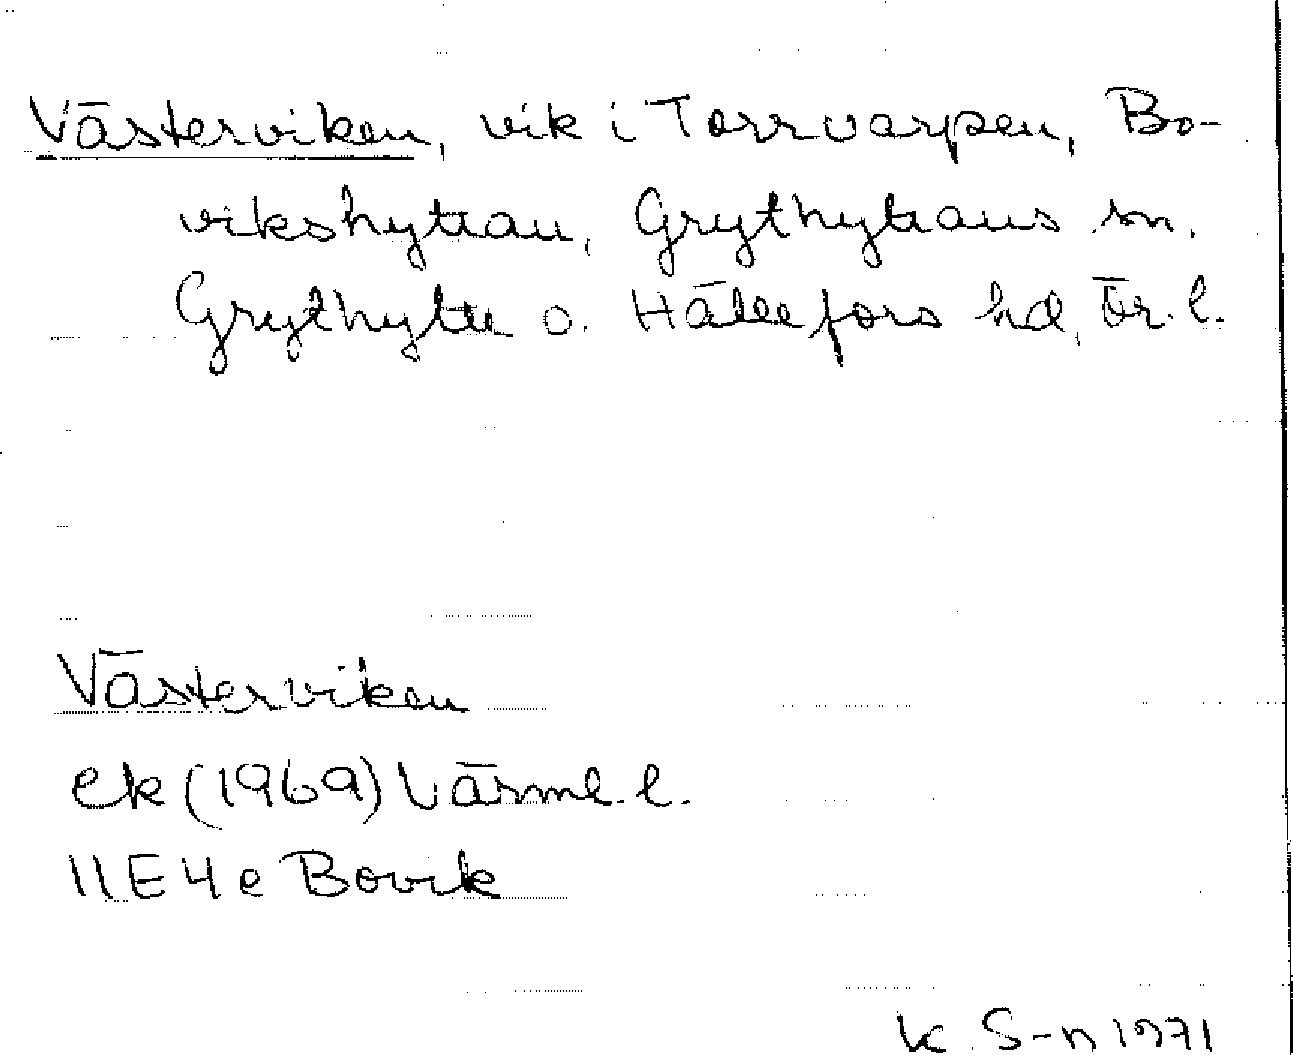 Västerviken, vik i Torrvarpen, Bo-
vikshyttan, Grythyttans sn,
Grythytte o. Hällefors hd, Ör. l.
Västerviken
ek (1969) Värml. l.
11E 4e Bovik
K. S-n 1971